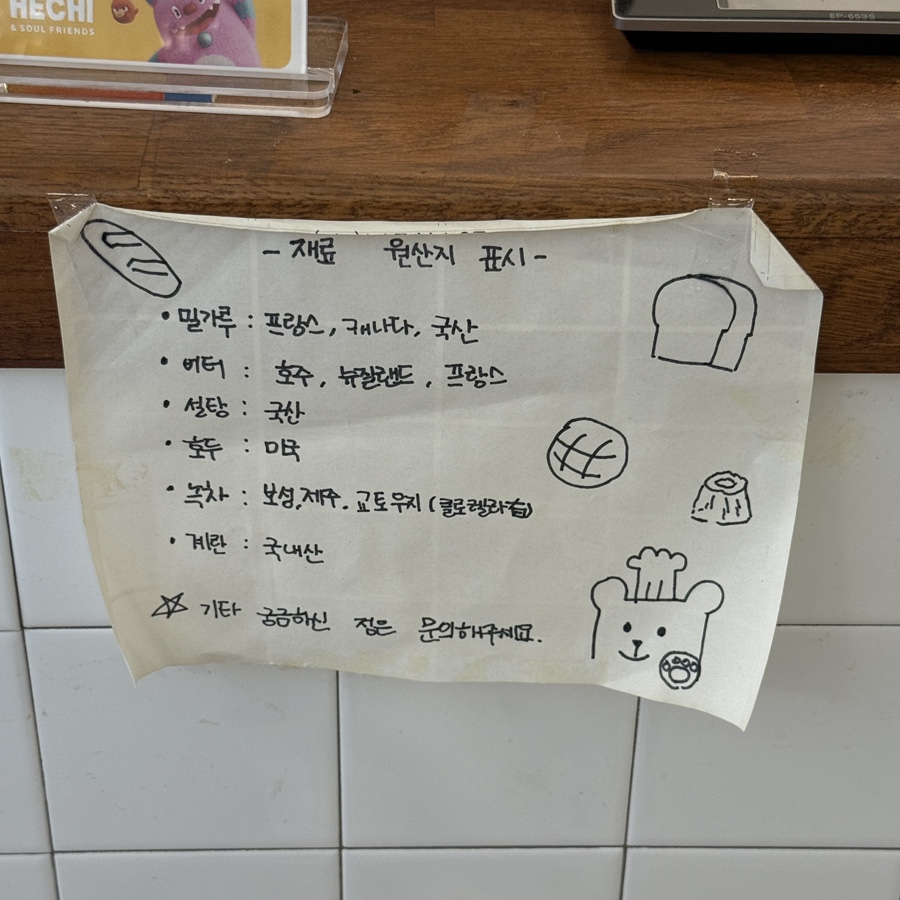 HECHI
& SOUL FRIENDS
EP-693S
- 재료 원산지 표시 -
• 밀가루 : 프랑스, 캐나다, 국산
• 버터 : 호주, 뉴질랜드, 프랑스
• 설탕 : 국산
• 호두 : 미국
• 녹차 : 보성,제주. 교토우지 (클로렐라
• 계란 : 국내산
☆ 기타 궁금하신 점은 문의해주세요.